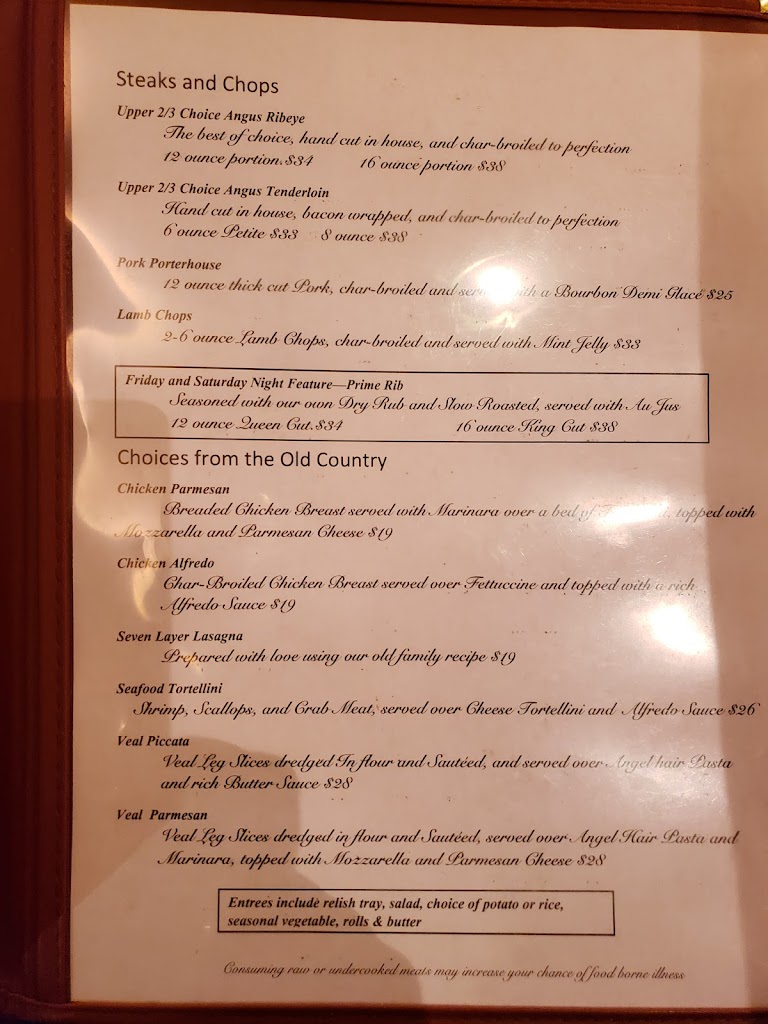 Steaks and Chops
Upper 2/3 Choice Angus Ribeye
The best of choice, hand cut in house, and char-broiled to perfection
12 ounce portion. $34 16 ounce portion $38
Upper 2/3 Choice Angus Tenderloin
Hand cut in house, bacon wrapped, and char-broiled to perfection
6 ounce Petite $33 8 ounce $38
Pork Porterhouse
12 ounce thick cut Pork, char-broiled and with a Bourbon Demi Glacé $25
Lamb Chops
2-6 ounce Lamb Chops, char-broiled and served with Mint Jelly $33
Friday and Saturday Night Feature—Prime Rib
Seasoned with our own Dry Rub and Slow Roasted, served with Au Jus
12 ounce Queen Cut.$34 16 ounce King Cut $38
Choices from the Old Country
Chicken Parmesan
Breaded Chicken Breast served with Marinara over a bed of topped with
Mozzarella and Parmesan Cheese $19
Chicken Alfredo
Char-Broiled Chicken Breast served over Fettuccine and topped with a rich
Alfredo Sauce $19
Seven Layer Lasagna
Prepared with love using our old family recipe $19
Seafood Tortellini
Shrimp, Scallops, and Crab Meat, served over Cheese Tortellini and Alfredo Sauce $26
Veal Piccata
Veal Leg Slices dredged In flour and Sautéed, and served over Angel hair Pasta
and rich Butter Sauce $28
Veal Parmesan
Veal Leg Slices dredged in flour and Sautéed, served over Angel Hair Pasta and
Marinara, topped with Mozzarella and Parmesan Cheese $28
Entrees include relish tray, salad, choice of potato or rice,
seasonal vegetable, rolls & butter
Consuming raw or undercooked meats may increase your chance of food borne illness